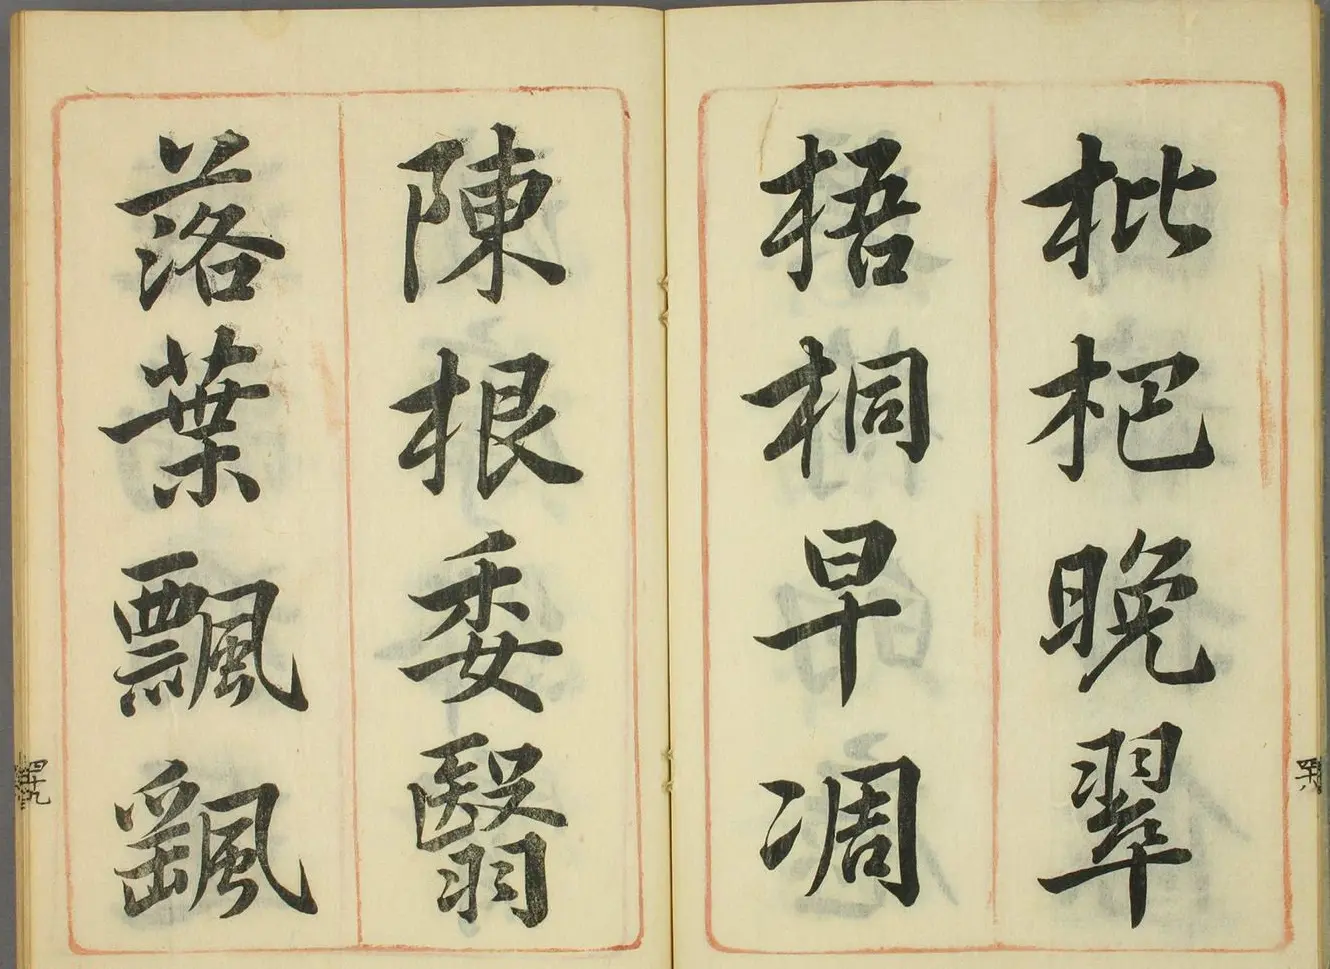 枇杷晚翠
梧桐早凋
陳根委翳
落葉飄颻
四十九